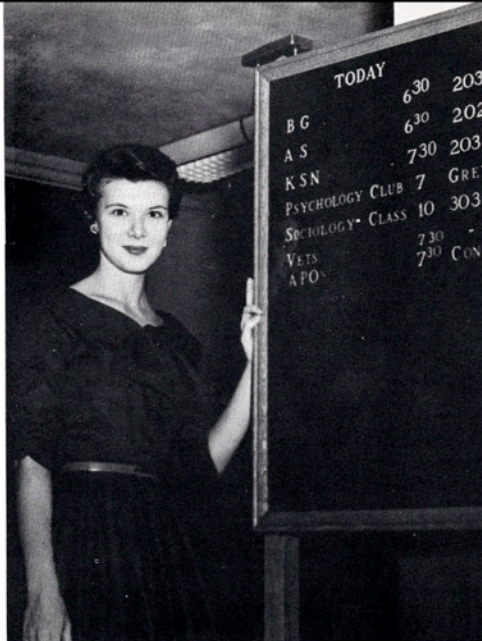 TODAY
BG 6³⁰ 203
AS 6³⁰ 202
KSN 7³⁰ 203
PSYCHOLOGY CLUB 7
SOCIOLOGY- CLASS 10 303
VETS 7³⁰ -
APO 7³⁰